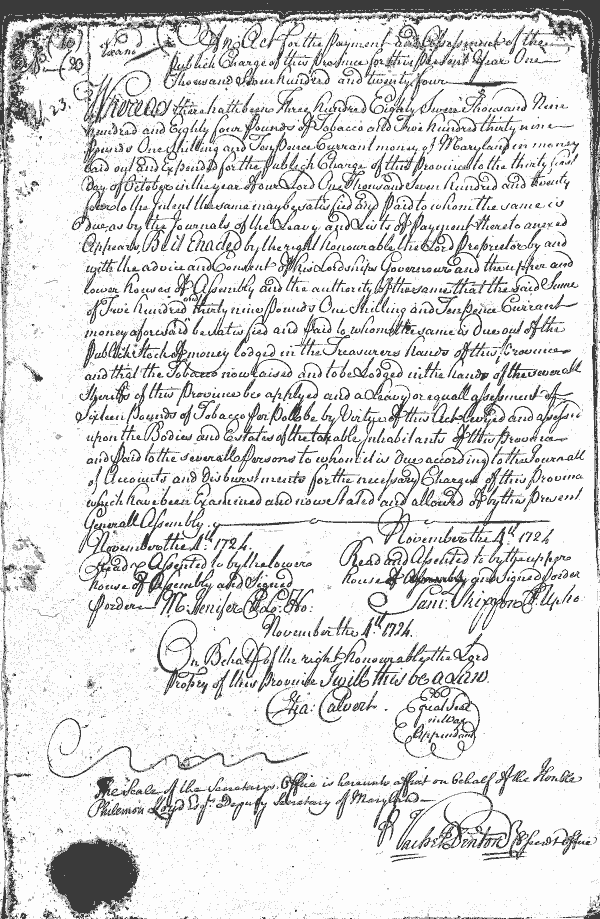 An Act for the Payment and Assessment of the
Publick Charge of this Province for this Present Year One
Thousand Seven hundred and twenty four
Whereas there hath been Three hundred Eighty Seven Thousand Nine
hundred and Eighty four Pounds of Tobacco and Five hundred thirty nine
Pounds One Shilling and Ten Pence Currant money of Maryland in money
Laid out and Expended for the Publick Charge of this Province to the thirty first
day of October in the year of our Lord One Thousand Seven hundred and twenty
four to the Intent the same may be satisfied and Paid to whom the same is
Due as by the Journals of the Leavy and Lists of Payment thereto anexed
Appears, Be it Enacted by the right honourable the Lord Proprietor by and
with the advice and Consent of his Lordships Governour and the upper and
lower houses of Assembly and the authority of the same that the said Sume
of Five hundred and thirty nine Pounds One Shilling and Ten Pence Currant
money aforesaid be satisfied and Paid to whom the same is Due out of the
Publick Stock of money lodged in the Treasurers hands of this Province
and that the Tobacco now raised and to be Lodged in the hands of the severall
Sheriffs of this Province be applyed and a Leavy or equall assessment of
Sixteen Pounds of Tobacco Per Poll be by Virtue of this Act Levyed and assessed
upon the Bodies and Estates of the taxable inhabitants of this Province
and Paid to the severall Persons to whom it is Due according to the Journall
of Accounts and Disbursments for the necessary Charges of this Province
which have been Examined and now stated and allowed of by this Present
Generall Assembly
Novemberthe 4th. 1724.
Read and Assented to by the lower
house of Assembly and Signed
P order M. Jenifer Clo: Ho:
November the 4th. 1724
Read and Assented to by the upper
house of Assembly and Signed P order
Saml. Skippon Cl. Up ho
November the 4th. 1724.
On Behalf of the right honourable the Lord
Propry of this Province I will this be a Law.
Cha: Calvert.
Equal Seal
in Wax
Appendant
The Seale of the Secretarys Office is hereunto affixt on behalf of the Honble
Philemon Lloyd Esqr. Deputy Secretary of Maryland
P Vachel Denton